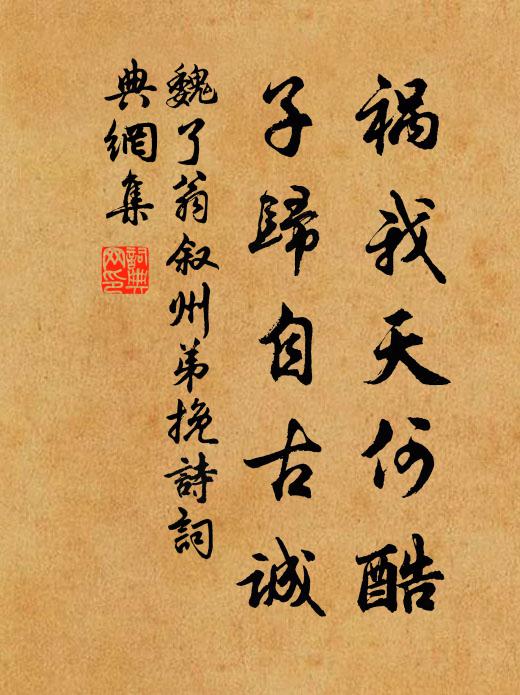 祸我天何酷
子歸自古誠
魏了翁叙州弟挽詩詞
典網集
詞典网印